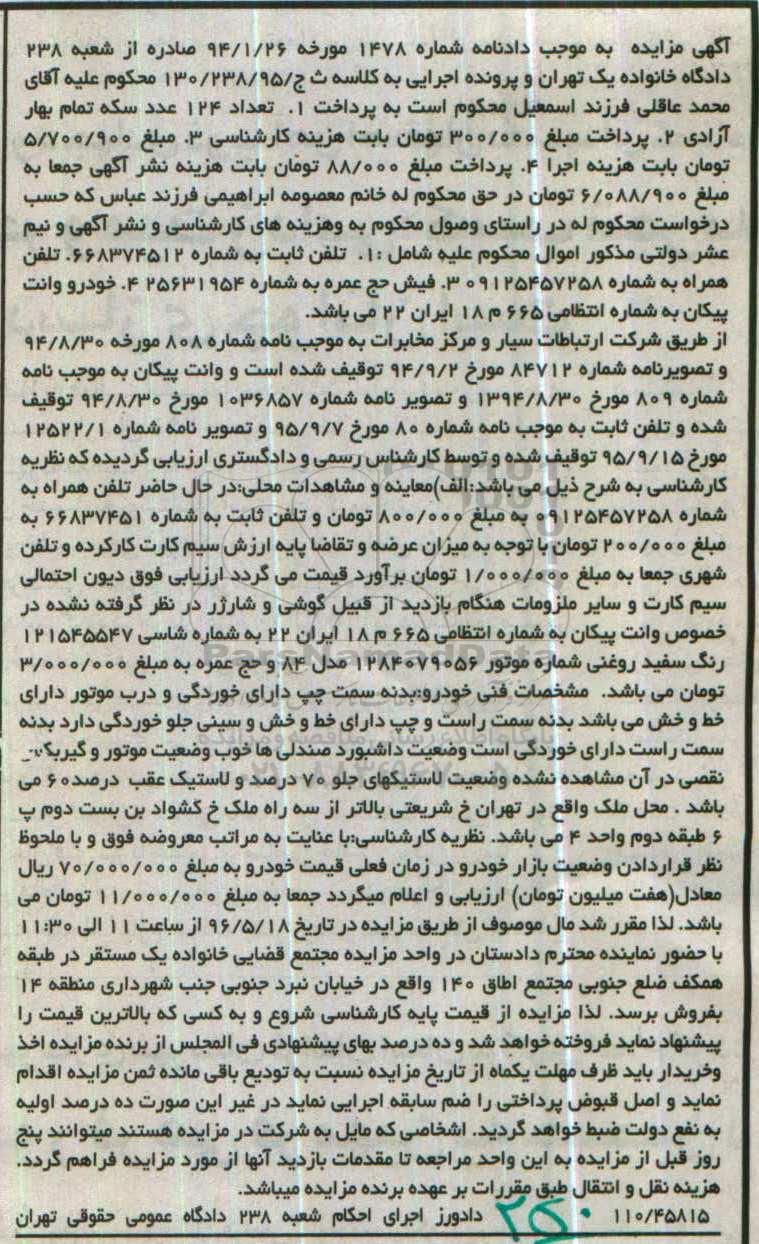 آگهی مزایده به موجب دادنامه شماره ۱۴۷۸ مورخه ۹۴/۱/۲۶ صادره از شعبه ۲۳۸
دادگاه خانواده یک تهران و پرونده اجرایی به کلاسه ث ج/۱۳۰/۲۳۸/۹۵ محکوم علیه آقای
محمد عاقلی فرزند اسمعیل محکوم است به پرداخت ۱. تعداد ۱۲۴ عدد سکه تمام بهار
آزادی ۲. پرداخت مبلغ ۳۰۰/۰۰۰ تومان بابت هزینه کارشناسی ۳. مبلغ ۵/۷۰۰/۹۰۰
تومان بابت هزینه اجرا ۴. پرداخت مبلغ ۸۸/۰۰۰ تومان بابت هزینه نشر آگهی جمعا به
مبلغ ۶/۰۸۸/۹۰۰ تومان در حق محکوم له خانم معصومه ابراهیمی فرزند عباس که حسب
درخواست محکوم له در راستای وصول محکوم به وهزینه های کارشناسی و نشر آگهی و نیم
عشر دولتی مذکور اموال محکوم علیه شامل :۱. تلفن ثابت به شماره ۶۶۸۳۷۴۵۱۲. تلفن
همراه به شماره ۰۹۱۲۵۴۵۷۲۵۸ ۳. فیش حج عمره به شماره ۲۵۶۳۱۹۵۴ ۴. خودرو وانت
پیکان به شماره انتظامی ۶۶۵ م ۱۸ ایران ۲۲ می باشد.
از طریق شرکت ارتباطات سیار و مرکز مخابرات به موجب نامه شماره ۸۰۸ مورخه ۹۴/۸/۳۰
و تصویرنامه شماره ۸۴۷۱۲ مورخ ۹۴/۹/۲ توقیف شده است و وانت پیکان به موجب نامه
شماره ۸۰۹ مورخ ۱۳۹۴/۸/۳۰ و تصویر نامه شماره ۱۰۳۶۸۵۷ مورخ ۹۴/۸/۳۰ توقیف
شده و تلفن ثابت به موجب نامه شماره ۸۰ مورخ ۹۵/۹/۷ و تصویر نامه شماره ۱۲۵۲۲/۱
مورخ ۹۵/۹/۱۵ توقیف شده و توسط کارشناس رسمی و دادگستری ارزیابی گردیده که نظریه
کارشناسی به شرح ذیل می باشد:الف)معاینه و مشاهدات محلی:در حال حاضر تلفن همراه به
شماره ۰۹۱۲۵۴۵۷۲۵۸ به مبلغ ۸۰۰/۰۰۰ تومان و تلفن ثابت به شماره ۶۶۸۳۷۴۵۱ به
مبلغ ۲۰۰/۰۰۰ تومان با توجه به میزان عرضه و تقاضا پایه ارزش سیم کارت کارکرده و تلفن
شهری جمعا به مبلغ ۱/۰۰۰/۰۰۰ تومان برآورد قیمت می گردد ارزیابی فوق دیون احتمالی
سیم کارت و سایر ملزومات هنگام بازدید از قبیل گوشی و شارژر در نظر گرفته نشده در
خصوص وانت پیکان به شماره انتظامی ۶۶۵ م ۱۸ ایران ۲۲ به شماره شاسی ۱۲۱۵۴۵۵۴۷
رنگ سفید روغنی شماره موتور ۱۲۸۴۰۷۹۰۵۶ مدل ۸۴ و حج عمره به مبلغ ۳/۰۰۰/۰۰۰
تومان می باشد. مشخصات فنی خودرو:بدنه سمت چپ دارای خوردگی و درب موتور دارای
خط و خش می باشد بدنه سمت راست و چپ دارای خط و خش و سینی جلو خوردگی دارد بدنه
سمت راست دارای خوردگی است وضعیت داشبورد صندلی ها خوب وضعیت موتور و گیربکس
نقصی در آن مشاهده نشده وضعیت لاستیکهای جلو ۷۰ درصد و لاستیک عقب درصد۶۰ می
باشد . محل ملک واقع در تهران خ شریعتی بالاتر از سه راه ملک خ کشواد بن بست دوم پ
۶ طبقه دوم واحد ۴ می باشد. نظریه کارشناسی:با عنایت به مراتب معروضه فوق و با ملحوظ
نظر قراردادن وضعیت بازار خودرو در زمان فعلی قیمت خودرو به مبلغ ۷۰/۰۰۰/۰۰۰ ریال
معادل(هفت میلیون تومان) ارزیابی و اعلام میگردد جمعا به مبلغ ۱۱/۰۰۰/۰۰۰ تومان می
باشد. لذا مقرر شد مال موصوف از طریق مزایده در تاریخ ۹۶/۵/۱۸ از ساعت ۱۱ الی ۱۱:۳۰
با حضور نماینده محترم دادستان در واحد مزایده مجتمع قضایی خانواده یک مستقر در طبقه
همکف ضلع جنوبی مجتمع اطاق ۱۴۰ واقع در خیابان نبرد جنوبی جنب شهرداری منطقه ۱۴
بفروش برسد. لذا مزایده از قیمت پایه کارشناسی شروع و به کسی که بالاترین قیمت را
پیشنهاد نماید فروخته خواهد شد و ده درصد بهای پیشنهادی فی المجلس از برنده مزایده اخذ
وخریدار باید ظرف مهلت یکماه از تاریخ مزایده نسبت به تودیع باقی مانده ثمن مزایده اقدام
نماید و اصل قبوض پرداختی را ضم سابقه اجرایی نماید در غیر این صورت ده درصد اولیه
به نفع دولت ضبط خواهد گردید. اشخاصی که مایل به شرکت در مزایده هستند میتوانند پنج
روز قبل از مزایده به این واحد مراجعه تا مقدمات بازدید آنها از مورد مزایده فراهم گردد.
هزینه نقل و انتقال طبق مقررات بر عهده برنده مزایده میباشد.
۱۱۰/۴۵۸۱۵ دادورز اجرای احکام شعبه ۲۳۸ دادگاه عمومی حقوقی تهران
۲۵۰
ParsNamadData